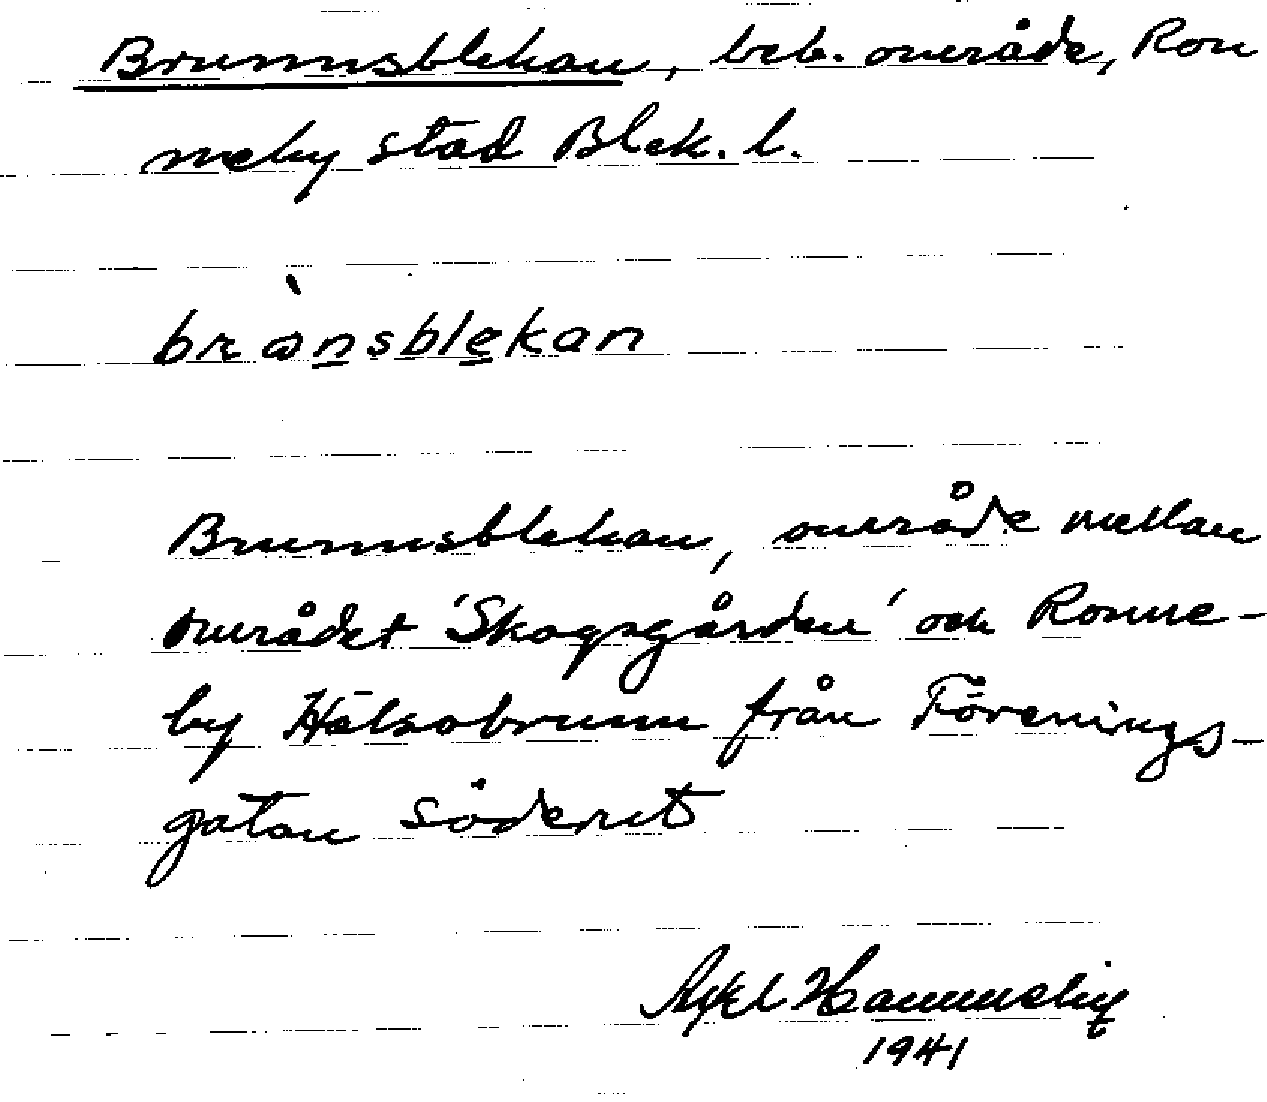 Brunnsblekan, beb. område, Ron
neby stad Blek. l.
brənsblekan
Brunnsblekan, område mellan
området 'Skogsgården' och Ronne-
by Hälsobrunn från Förenings-
gatan söderut
Axel
1941